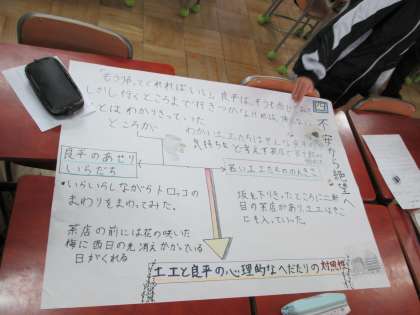 四 不安から絶望へ
「もう帰ってくれればいい。」良平は、
しかし、行くところまで行きつかなければ
ことはわかりきっていた
ところが
わかい土工たちは
気持ちを考えず
良平のあせり
いらだち
若い土工たちの
・いらいらしながらトロッコの
まわりをまわってみた。
茶店の前には花の咲いた
梅に西日の光消えかかっている
日がくれる
坂を下りきったところに二軒
目の茶店があり、土工はそこ
にも入っていった。
土工と良平の心理的なへだたりの対照性